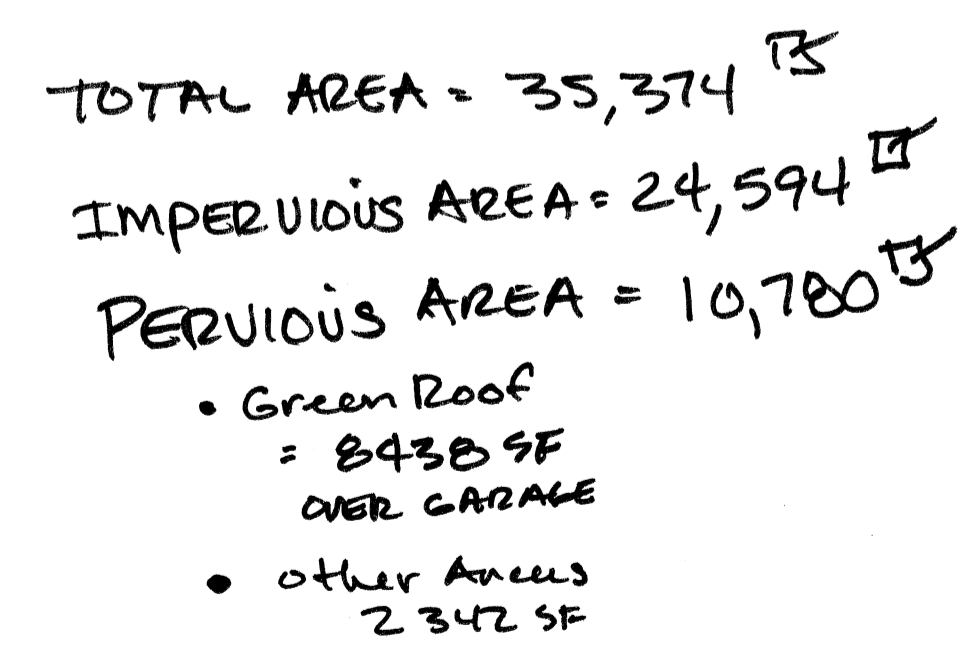 TOTAL AREA = 35,374
IMPERVIOUS AREA = 24,594
PERVIOUS AREA = 10,780
• Green Roof
= 8438 SF
OVER GARAGE
• other Areas
2342 SF